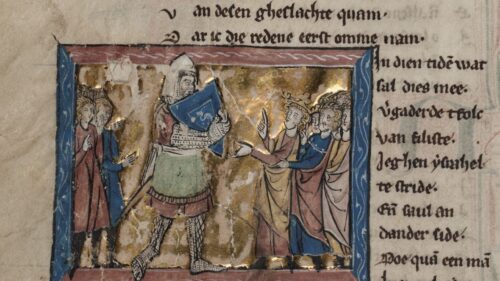 V an desen gheslachte quam.
D ar ic die redene eerst omme nam.
In dien tidē wat
sal dies mee.
Vgaderde tfolc
van filiste.
Jeghen ysrahel
te stride.
Eñ saul an
dander side.
Doe quā een mā